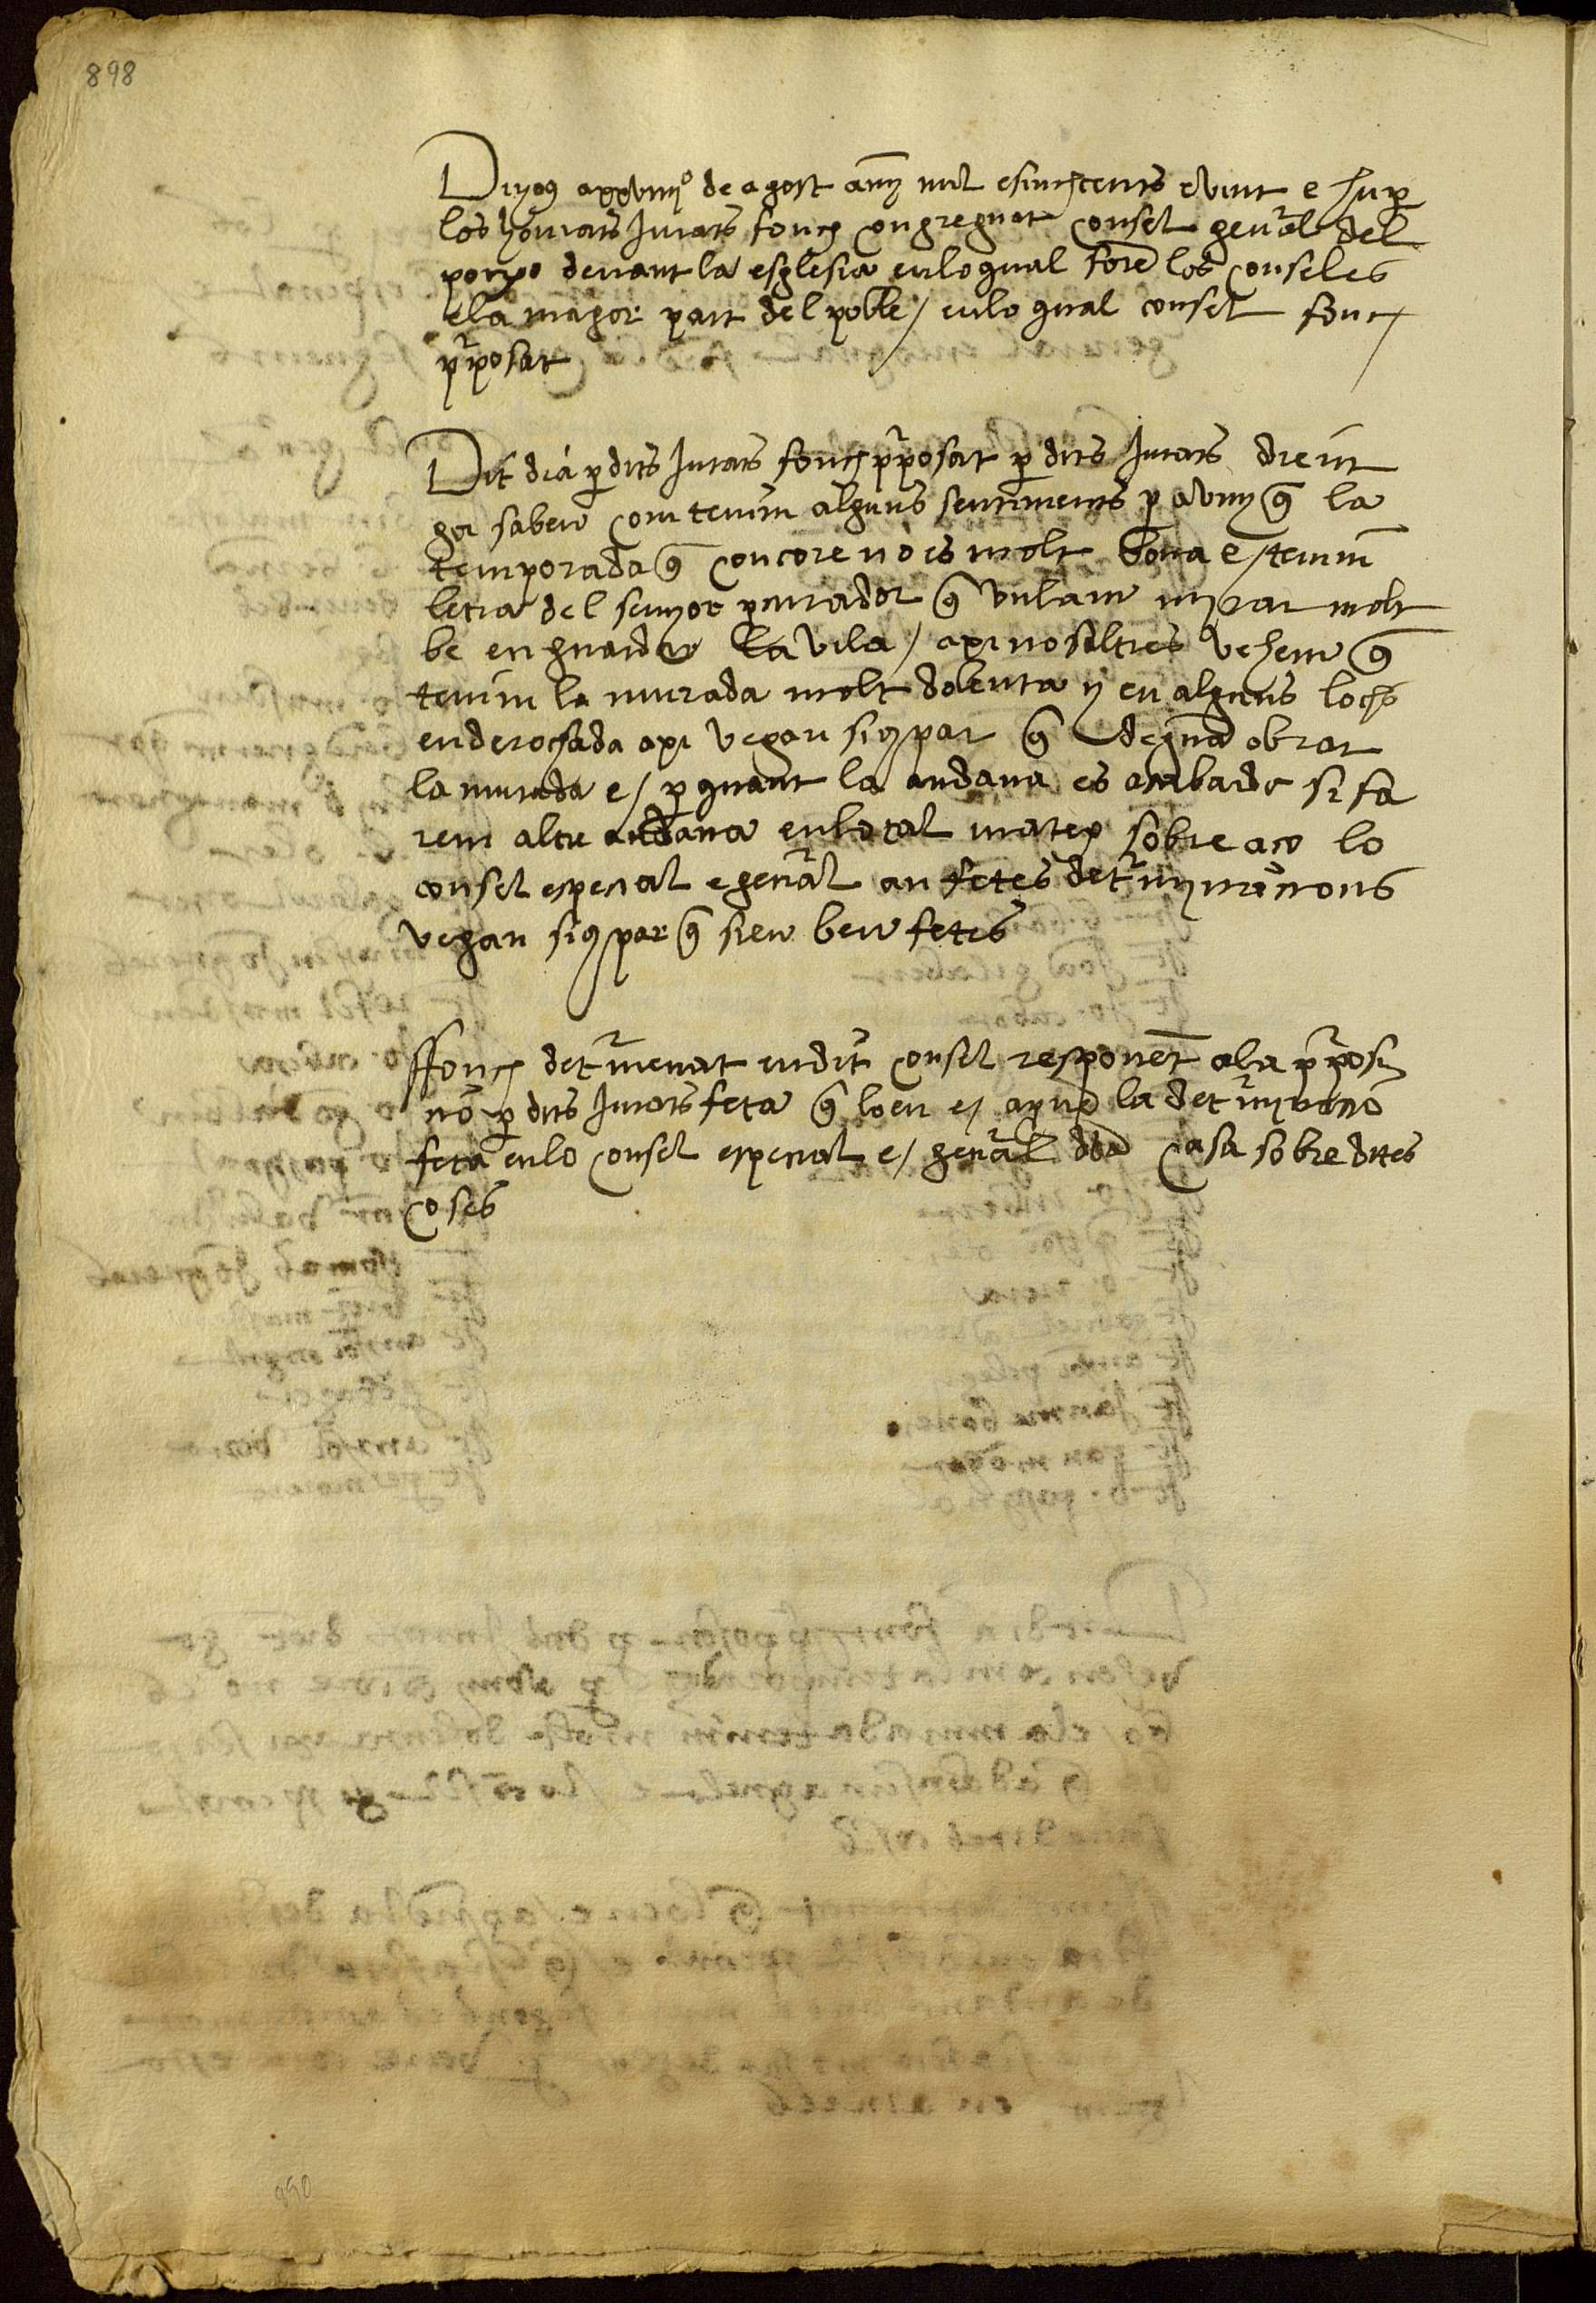 898
Diyous a xxviiijº de agost any mil e sinchcents e vint e hu per
los honrats Jurats fonch congreguat consel genral del
porxo devant la esglesia en lo qual foren los conseles
e la mayor part del poble / en lo qual consel fonch
proposat
Dit dia per dits Jurats fonch proposat per dits Jurats dient
saben com tenim alguns sentiments per avuy que la
temporada que concore no es molt bona e / tenim
letra del senyor procurador que vulam myrar molt
be en guardar la vila / axi nosaltres vehem que
tenim la murada molt dolenta y en alguns lochs
enderocada axi vegan sius par que degua obrar
la murada e / per quant la andana es si fa
rem altre andana en lo cal matex sobre aço lo
consel especial e genral an fetes determinacions
vegan sius par que sien ben fetes
ffonch determenat en dit consel responent a la proposi
cio per dits Jurats feta que loen e / apro la determinacio
feta en lo consel especial e / genral casa sobre dites
coses
890